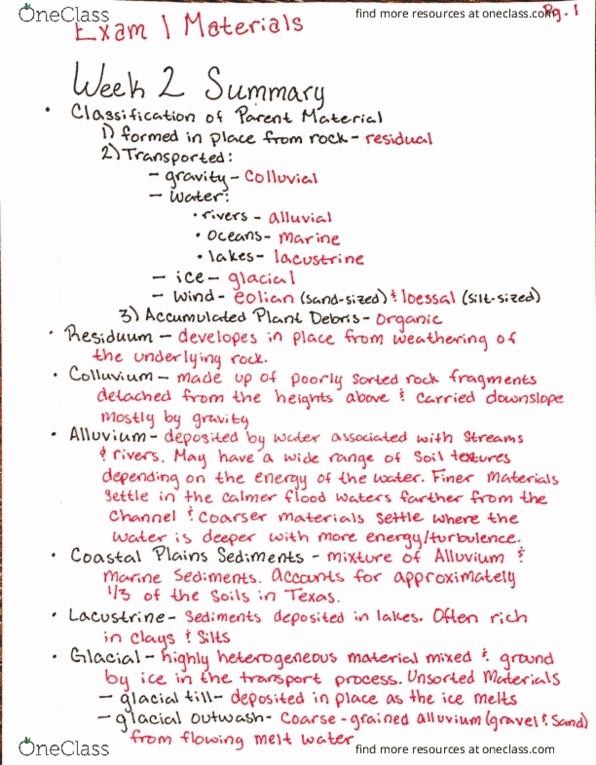 OneClass
find more resources at oneclass.com
Pg. 1
Exam 1 Materials
Week 2 Summary
• Classification of Parent Material
1) formed in place from rock - residual
2) Transported:
- gravity - Colluvial
- Water:
• rivers - alluvial
• oceans - Marine
• lakes - lacustrine
- ice - glacial
- wind - eolian (sand-sized) & loessal (silt-sized)
3) Accumulated Plant Debris - Organic
• Residuum - developes in place from weathering of
the underlying rock.
• Colluvium - made up of poorly sorted rock fragments
detached from the heights above & carried downslope
mostly by gravity
• Alluvium - deposited by water associated with streams
& rivers. May have a wide range of soil textures
depending on the energy of the water. Finer Materials
settle in the calmer flood waters farther from the
channel & coarser materials settle where the
water is deeper with more energy/turbulence.
• Coastal Plains Sediments - mixture of Alluvium &
Marine Sediments. Accounts for approximately
1/3 of the soils in Texas.
• Lacustrine - Sediments deposited in lakes. Often rich
in clays & silts
• Glacial - highly heterogeneous material mixed & ground
by ice in the transport process. Unsorted Materials
- glacial till - deposited in place as the ice melts
- glacial outwash - Coarse-grained alluvium (gravel & sand)
from flowing melt water
OneClass
find more resources at oneclass.com